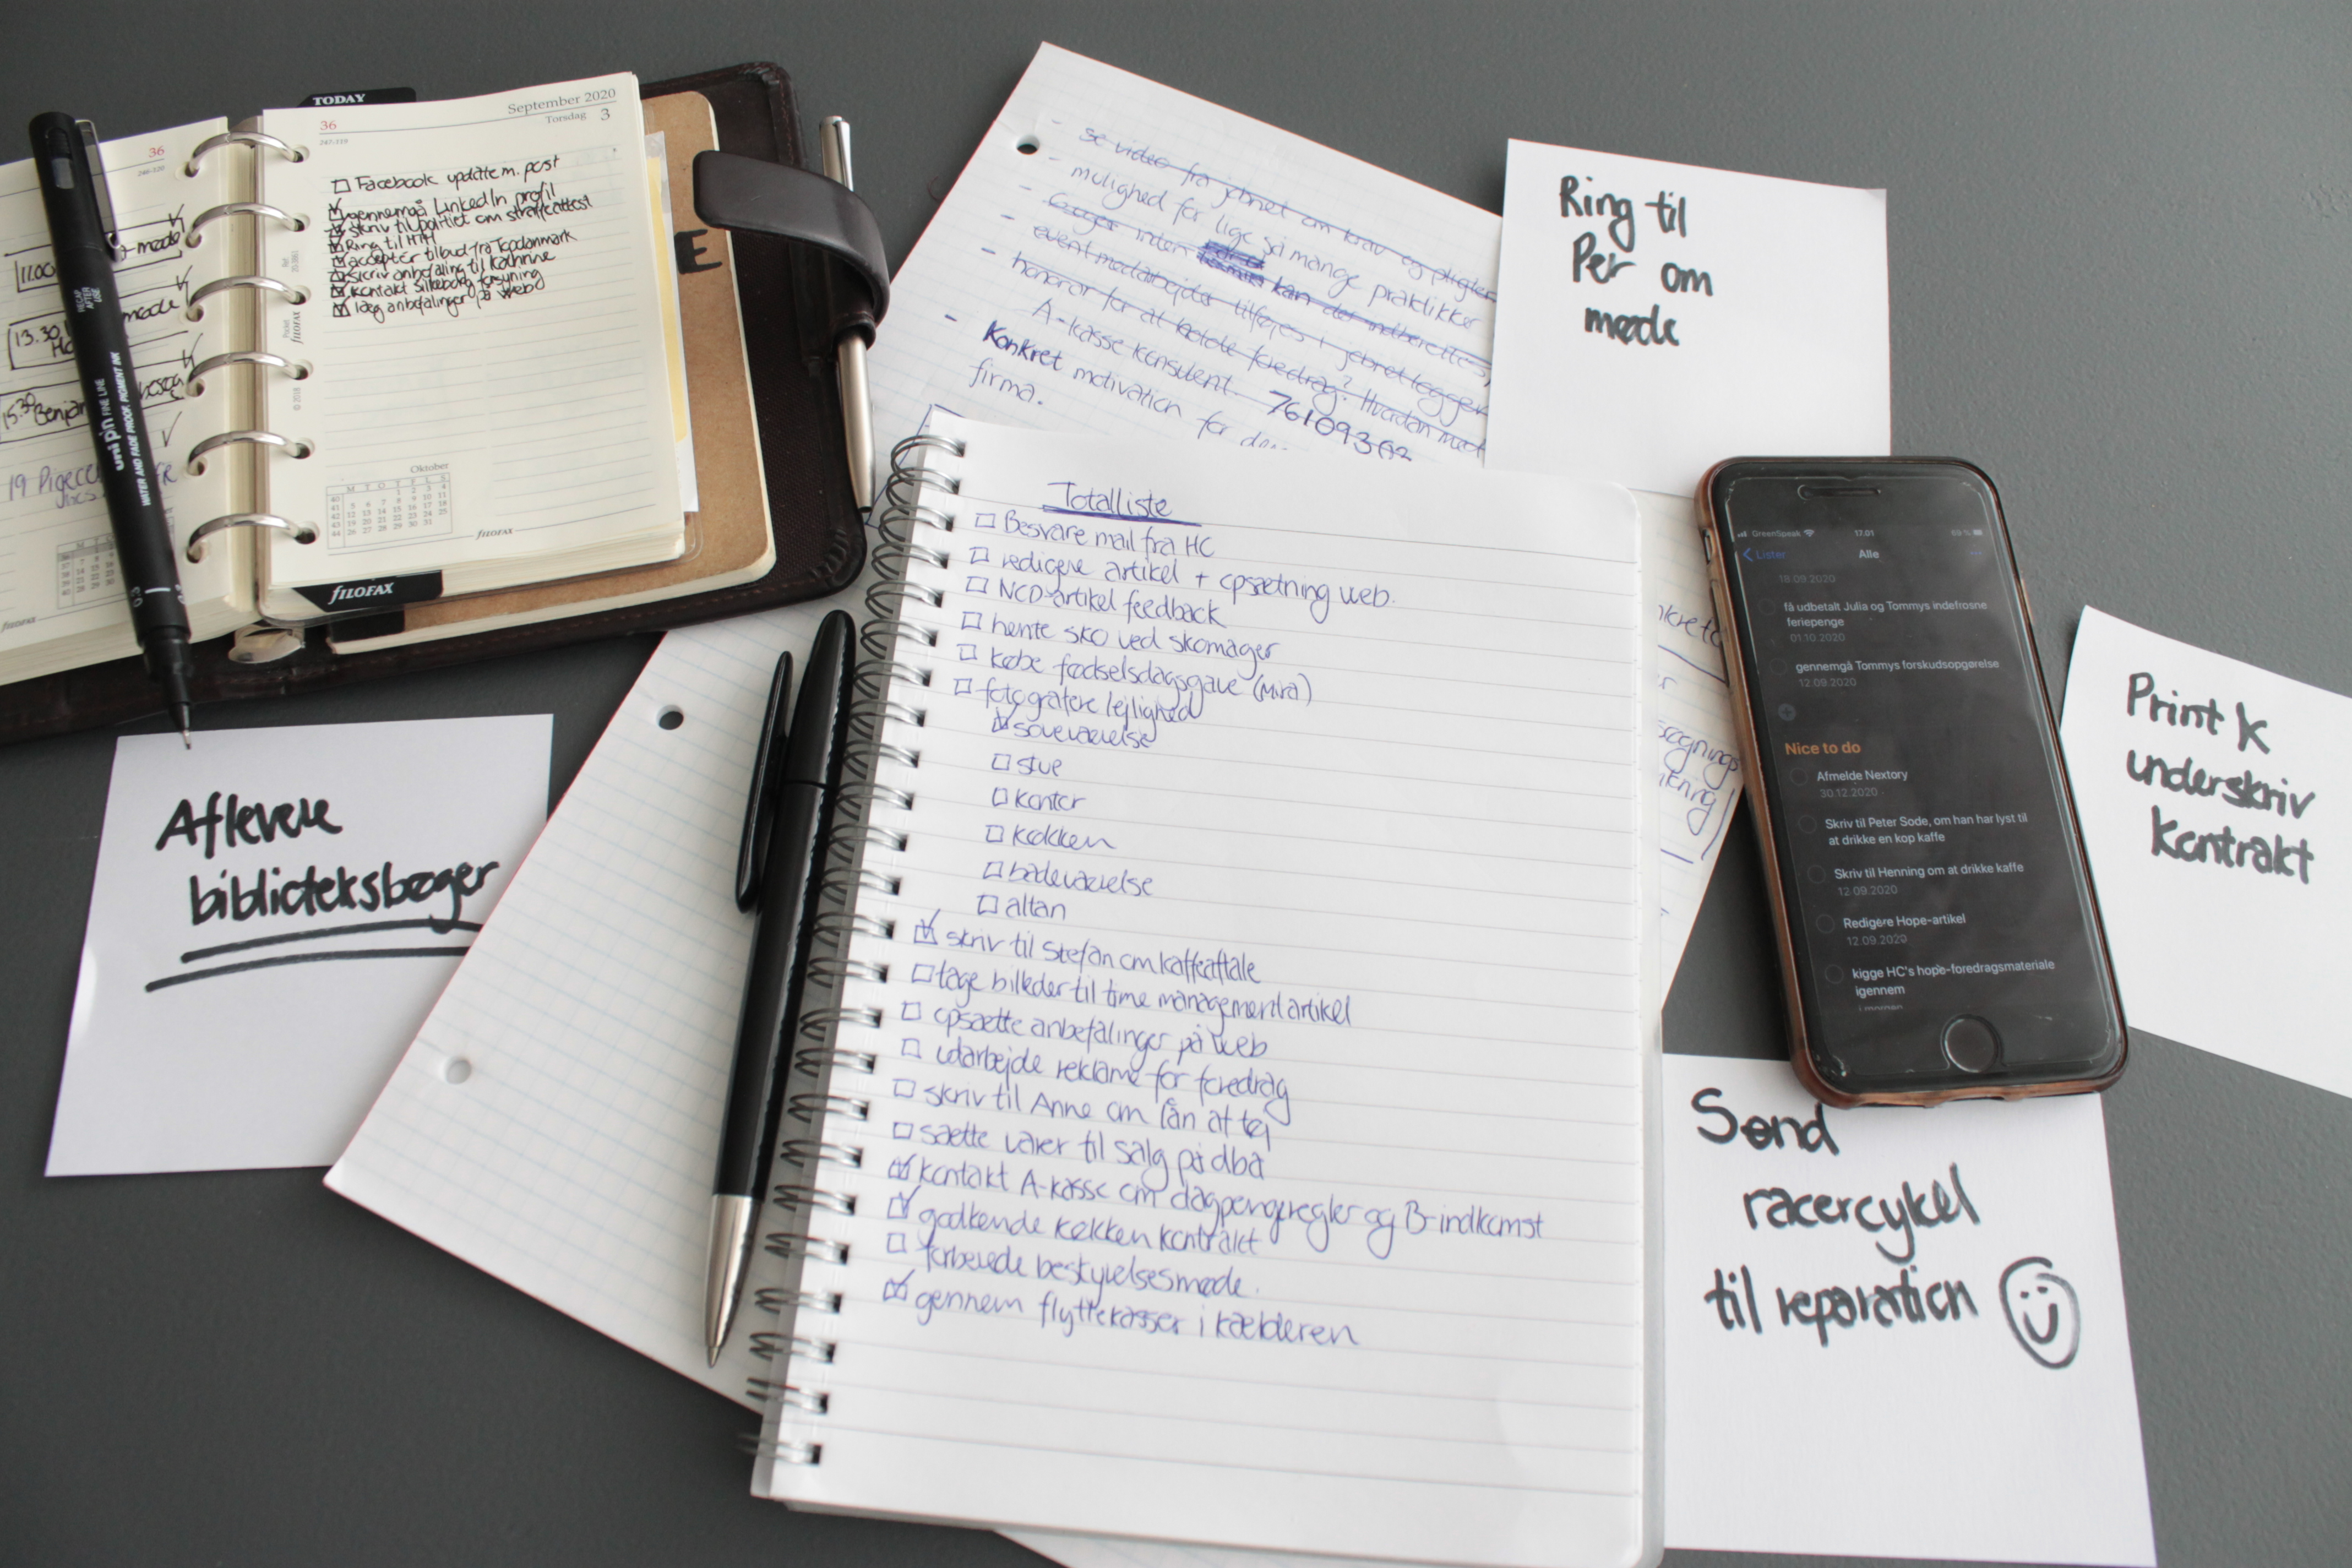 TODAY
36
September 2020
Torsdag 3
247-119
Facebook update m. post
gennemgå LinkedIn profil
skriv til politiet om straffeattest
Ring til HTH
accepter tilbud fra Tcodanmark
skriv anbefaling til Kathrine
kontakt Silkeborg forsyning
læg anbefalinger på web
Oktober
M T O T F L S
40 1 2 3 4
41 5 6 7 8 9 10 11
42 12 13 14 15 16 17 18
43 19 20 21 22 23 24 25
44 26 27 28 29 30 31
FILOFAX
FILOFAX
36
246-120
11.00
møde
13.30
møde
15.30 Benja
besøg
19
uni pin FINE LINE
WATER AND FADE PROOF PIGMENT INK
RECAP AFTER USE
0.8
E
- se video fra jobnet om krav og pligter
- mulighed for lige så mange praktikker
- inden kan det indberettes,
- eventmedarbejder tilføjes i jobnet logger
- honorar for at holde foredrag? Hvordan med
A-kasse konsulent.
- Konkret motivation for
firma.
Ring til
Per om
møde
Totalliste
Besvare mail fra HC
redigere artikel + opsætning web.
NCD-artikel feedback
hente sko ved skomager
købe fødselsdagsgave (Mira)
fotografere lejlighed
soveværelse
stue
kontor
køkken
badeværelse
altan
skriv til Stefan om kaffeaftale
tage billeder til time management artikel
opsætte anbefalinger på web
udarbejde reklame for foredrag
skriv til Anne om lån af tøj
sætte varer til salg på dba
kontakt A-kasse om dagpengeregler og B-indkomst
godkende køkken kontrakt
forberede bestyrelsesmøde.
gennem flyttekasser i kælderen
Aflevere
biblioteksbøger
GreenSpeak 17.01 69 %
Lister Alle
18.09.2020
få udbetalt Julia og Tommys indefrosne
feriepenge
01.10.2020
gennemgå Tommys forskudsopgørelse
12.09.2020
Nice to do
Afmelde Nextory
30.12.2020
Skriv til Peter Sode, om han har lyst til
at drikke en kop kaffe
Skriv til Henning om at drikke kaffe
12.09.2020
Redigere Hope-artikel
12.09.2020
kigge HC's hope-foredragsmateriale
igennem
i morgen
Print &
underskriv
Kontrakt
Send
racercykel
til reparation